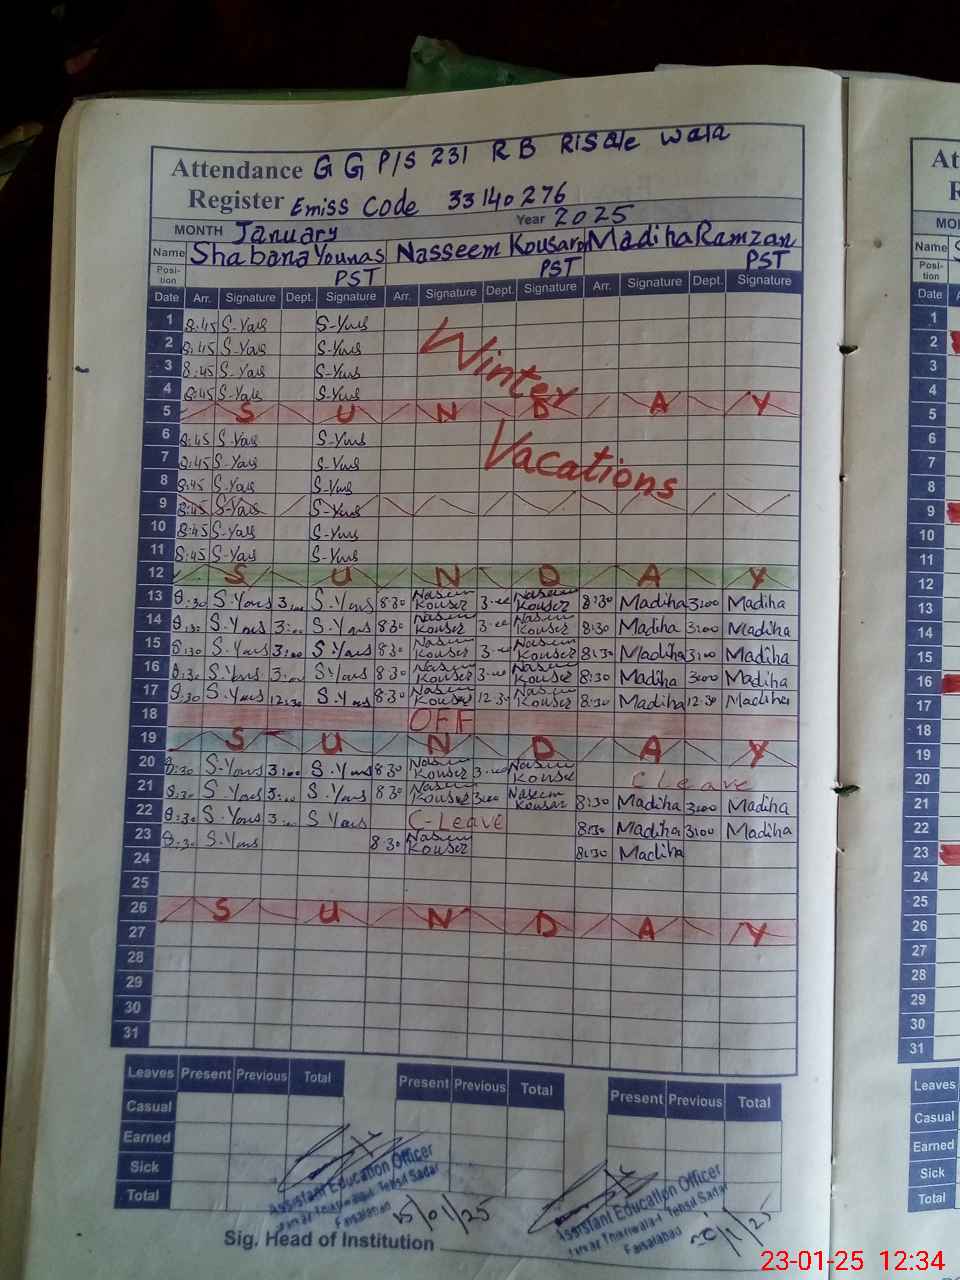 Attendance G G P/S 231 R B Risale wala
Register Emiss Code 33140276
MONTH January Year 2025
Name Shabana Younas Nasseem Kousar Madiha Ramzan
Posi-tion PST PST PST
Date Arr. Signature Dept. Signature Arr. Signature Dept. Signature Arr. Signature Dept. Signature
1 8:45 S-Yous S-Yous
2 8:45 S-Yous S-Yous Winter
3 8:45 S-Yous S-Yous
4 8:45 S-Yous S-Yous
5 S U N D A Y
6 8:45 S-Yous S-Yous
7 8:45 S-Yous S-Yous Vacations
8 8:45 S-Yous S-Yous
9 8:45 S-Yous S-Yous
10 8:45 S-Yous S-Yous
11 8:45 S-Yous S-Yous
12 S U N D A Y
13 8:30 S.Yous 3:00 S.Yous 8:30 Naseem Kouser 3:00 Naseem Kouser 8:30 Madiha 3:00 Madiha
14 8:30 S.Yous 3:00 S.Yous 8:30 Naseem Kouser 3:00 Naseem Kouser 8:30 Madiha 3:00 Madiha
15 8:30 S.Yous 3:00 S.Yous 8:30 Naseem Kouser 3:00 Naseem Kouser 8:30 Madiha 3:00 Madiha
16 8:30 S.Yous 3:00 S.Yous 8:30 Naseem Kouser 3:00 Naseem Kouser 8:30 Madiha 3:00 Madiha
17 8:30 S.Yous 12:30 S.Yous 8:30 Naseem Kouser 12:30 Naseem Kouser 8:30 Madiha 12:30 Madiha
18 OFF
19 S U N D A Y
20 8:30 S.Yous 3:00 S.Yous 8:30 Naseem Kouser 3:00 Naseem Kouser C Leave
21 8:30 S.Yous 3:00 S.Yous 8:30 Naseem Kouser 3:00 Naseem Kousar 8:30 Madiha 3:00 Madiha
22 8:30 S.Yous 3:00 S.Yous C-Leave 8:30 Madiha 3:00 Madiha
23 8:30 S.Yous 8:30 Naseem Kouser 8:30 Madiha
24
25
26 S U N D A Y
27
28
29
30
31
Leaves Present Previous Total Present Previous Total Present Previous Total
Casual
Earned
Sick
Total
Assistant Education Officer
Tehsil Sadar
Faisalabad
/01/25
Assistant Education Officer
Tehsil Sadar
Faisalabad
/1/25
Sig. Head of Institution
At
R
MO
Name
Date
1
2
3
4
5
6
7
8
9
10
11
12
13
14
15
16
17
18
19
20
21
22
23
24
25
26
27
28
29
30
31
Leaves
Casual
Earned
Sick
Total
23-01-25 12:34